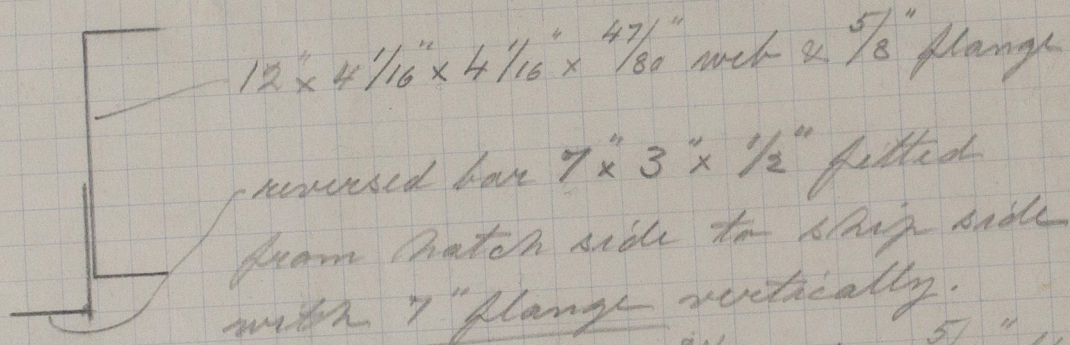 12" x 4 1/16" x 4 1/16" x 47/80" web & 5/8" flange
reversed bar 7" x 3" x 1/2" fitted
from hatch side to ship side
with 7" flange vertically.
5/ "